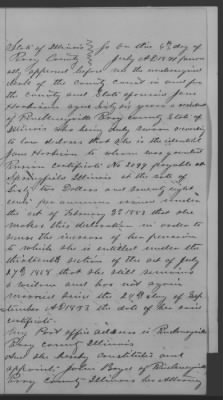 State of Illinois } ss on this 6th day of
Perry County } July A.D. 18 person
ally appeared before me the undersigned
Clerk of the county court in and for
the county and State aforesaid Jane
Hoskinson aged sixty six years a resident
of Pinckneyville Perry County State of
Illinois who being duly sworn according
to law declares that she is the identical
Jane Hoskinson to whom was granted
Pension Certificate No 2099 payable at
Springfield Illinois at the rate of
Sixty two Dollars and seventy eight
cents per annum issued under
the act of February 3d 1853 that she
makes this declaration in order to
secure the increase of her pension
to which she is entitled under the
thirteenth section of the act of July
27th 1868 that she still remains
a widow and has not again
married since the 24th day of Sep
tember A.D. 1853 the date of her said
certificate.
My Post office address is Pinckneyville
Perry County Illinois
And she hereby constitutes and
appoints John Boyd of Pinckneyville
Perry County Illinois her Attorney